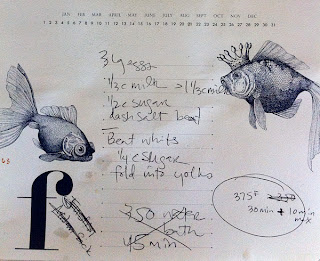 JAN FEB MARCH APRIL MAY JUNE JULY AUG SEPT OCT NOV DEC
1 2 3 4 5 6 7 8 9 10 11 12 13 14 15 16 17 18 19 20 21 22 23 24 25 26 27 28 29 30 31
3 eggs
1/3 c milk > 1 1/3 c milk
1/2 c sugar
dash salt beat
Beat whits
1/4 c sugar
fold into yolks
350
bath
45 min
375 F 350
30 min + 10 min
max
f